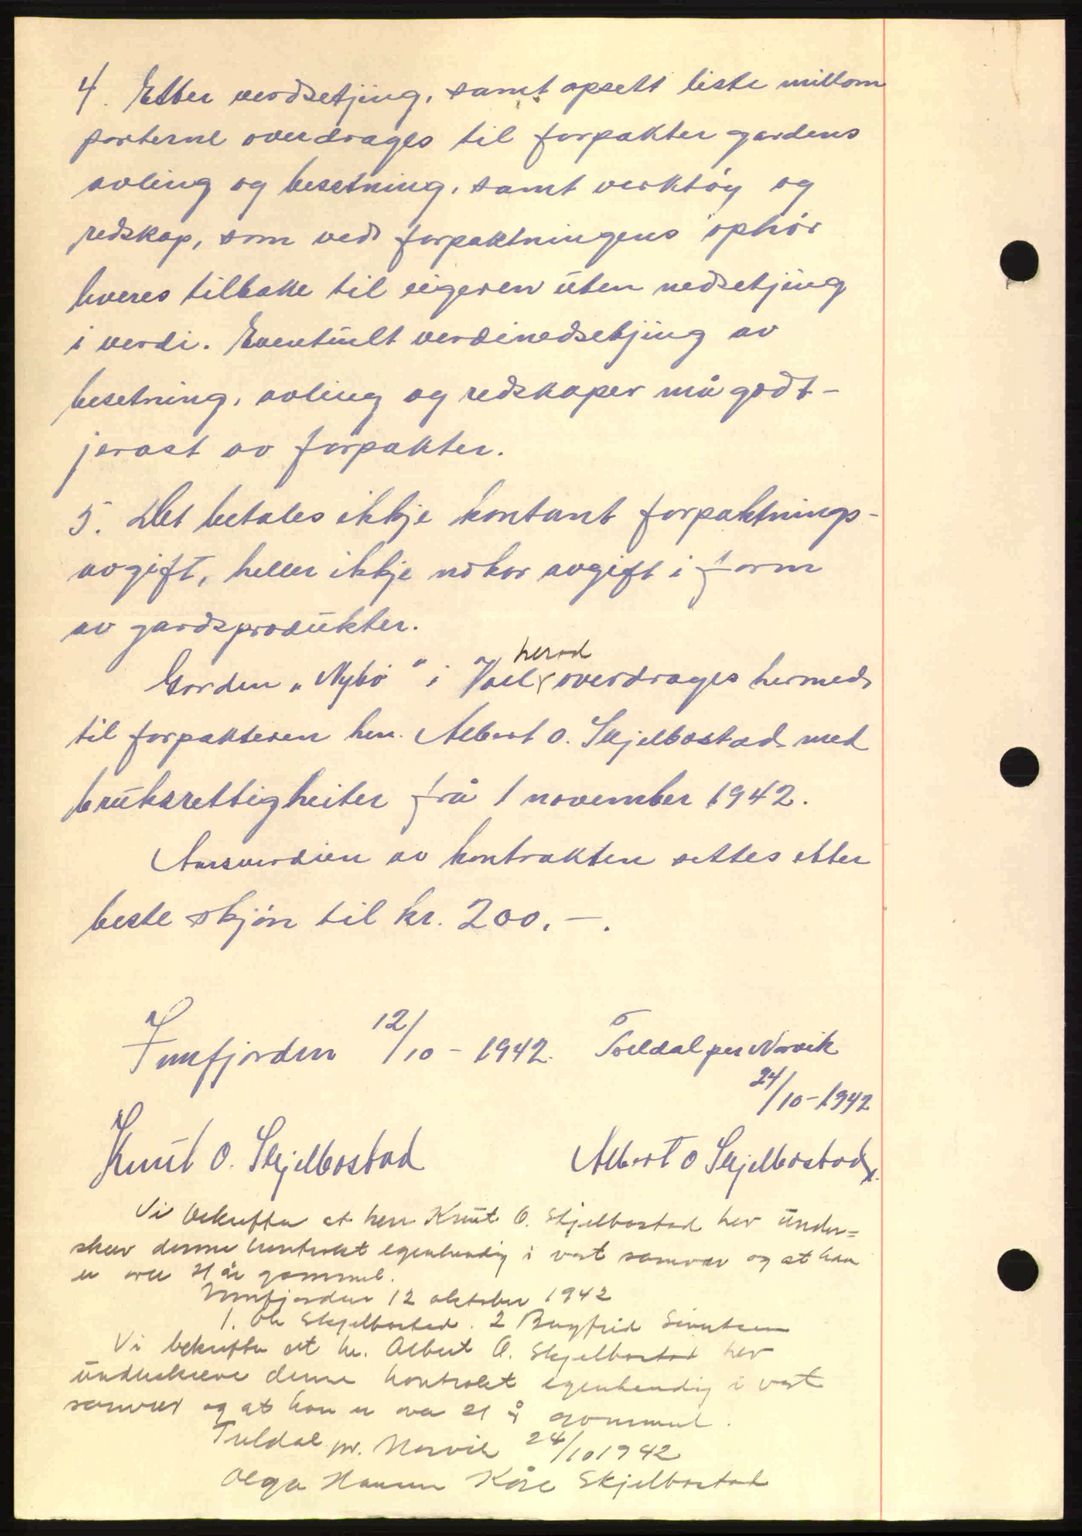 4. Etter verdsetjing, samt opsett liste millom
parterne overdrages til forpakter gardens
avling og besetning, samt verktöy og
redskap, som ved forpaktningens ophör
leveres tilbake til eigeren uten nedsetjing
i verdi. Eventuelt verdinedsetjing av
besetning, avling og redskaper må godt-
jerast av forpakter.
5. Det betales ikkje kontant forpaktnings-
avgift, heller ikkje nokor avgift i form
av gardsprodukter.
Garden "Nybö" i herad overdrages hermed
til forpakteren herr. Albert O. Skjelbostad med
bruksrettigheiter frå 1 november 1942.
Aarsverdien av kontrakten settes etter
beste skjön til kr. 200.-.
12/10 - 1942. per Narvik
24/10-1942
Knut O. Skjelbostad Albert O Skjelbostad
Vi bekrefter at herr Knut O. Skjelbostad har under=
skrev denne kontrakt egenhendig i vort samvær og at han
er over 21 år gammel.
12 oktober 1942
1. Ole Skjelbostad. 2
Vi bekrefter at hr. Albert O. Skjelbostad har
underskreve denne kontrakt egenhendig i vort
samvær og at han er over 21 å gammel.
pr. Narvik 24/10 1942
Olga Hansen Kåre Skjelbostad